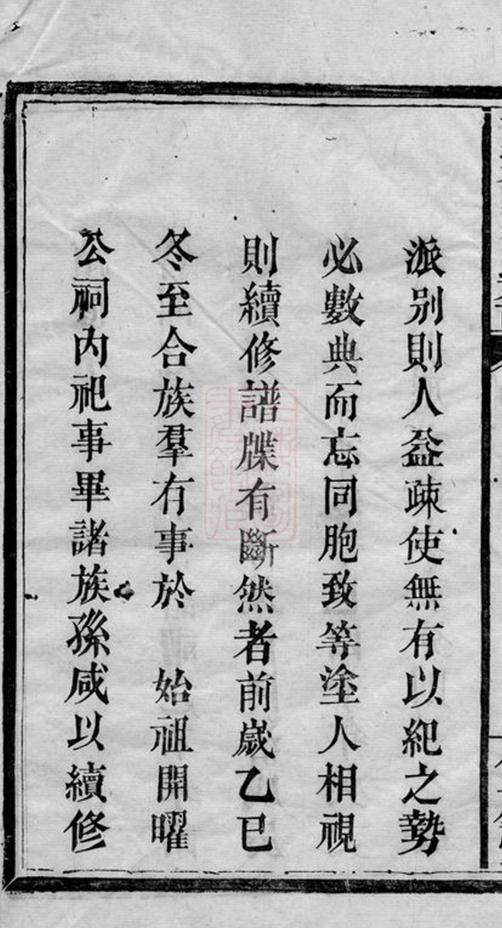 派別則人益疎使無有以紀之勢
必數典而忘同胞致等塗人相視
則續修譜牒有斷然者前歲乙巳
冬至合族羣有事於　始祖開曜
公祠內祀事畢諸族孫咸以續修